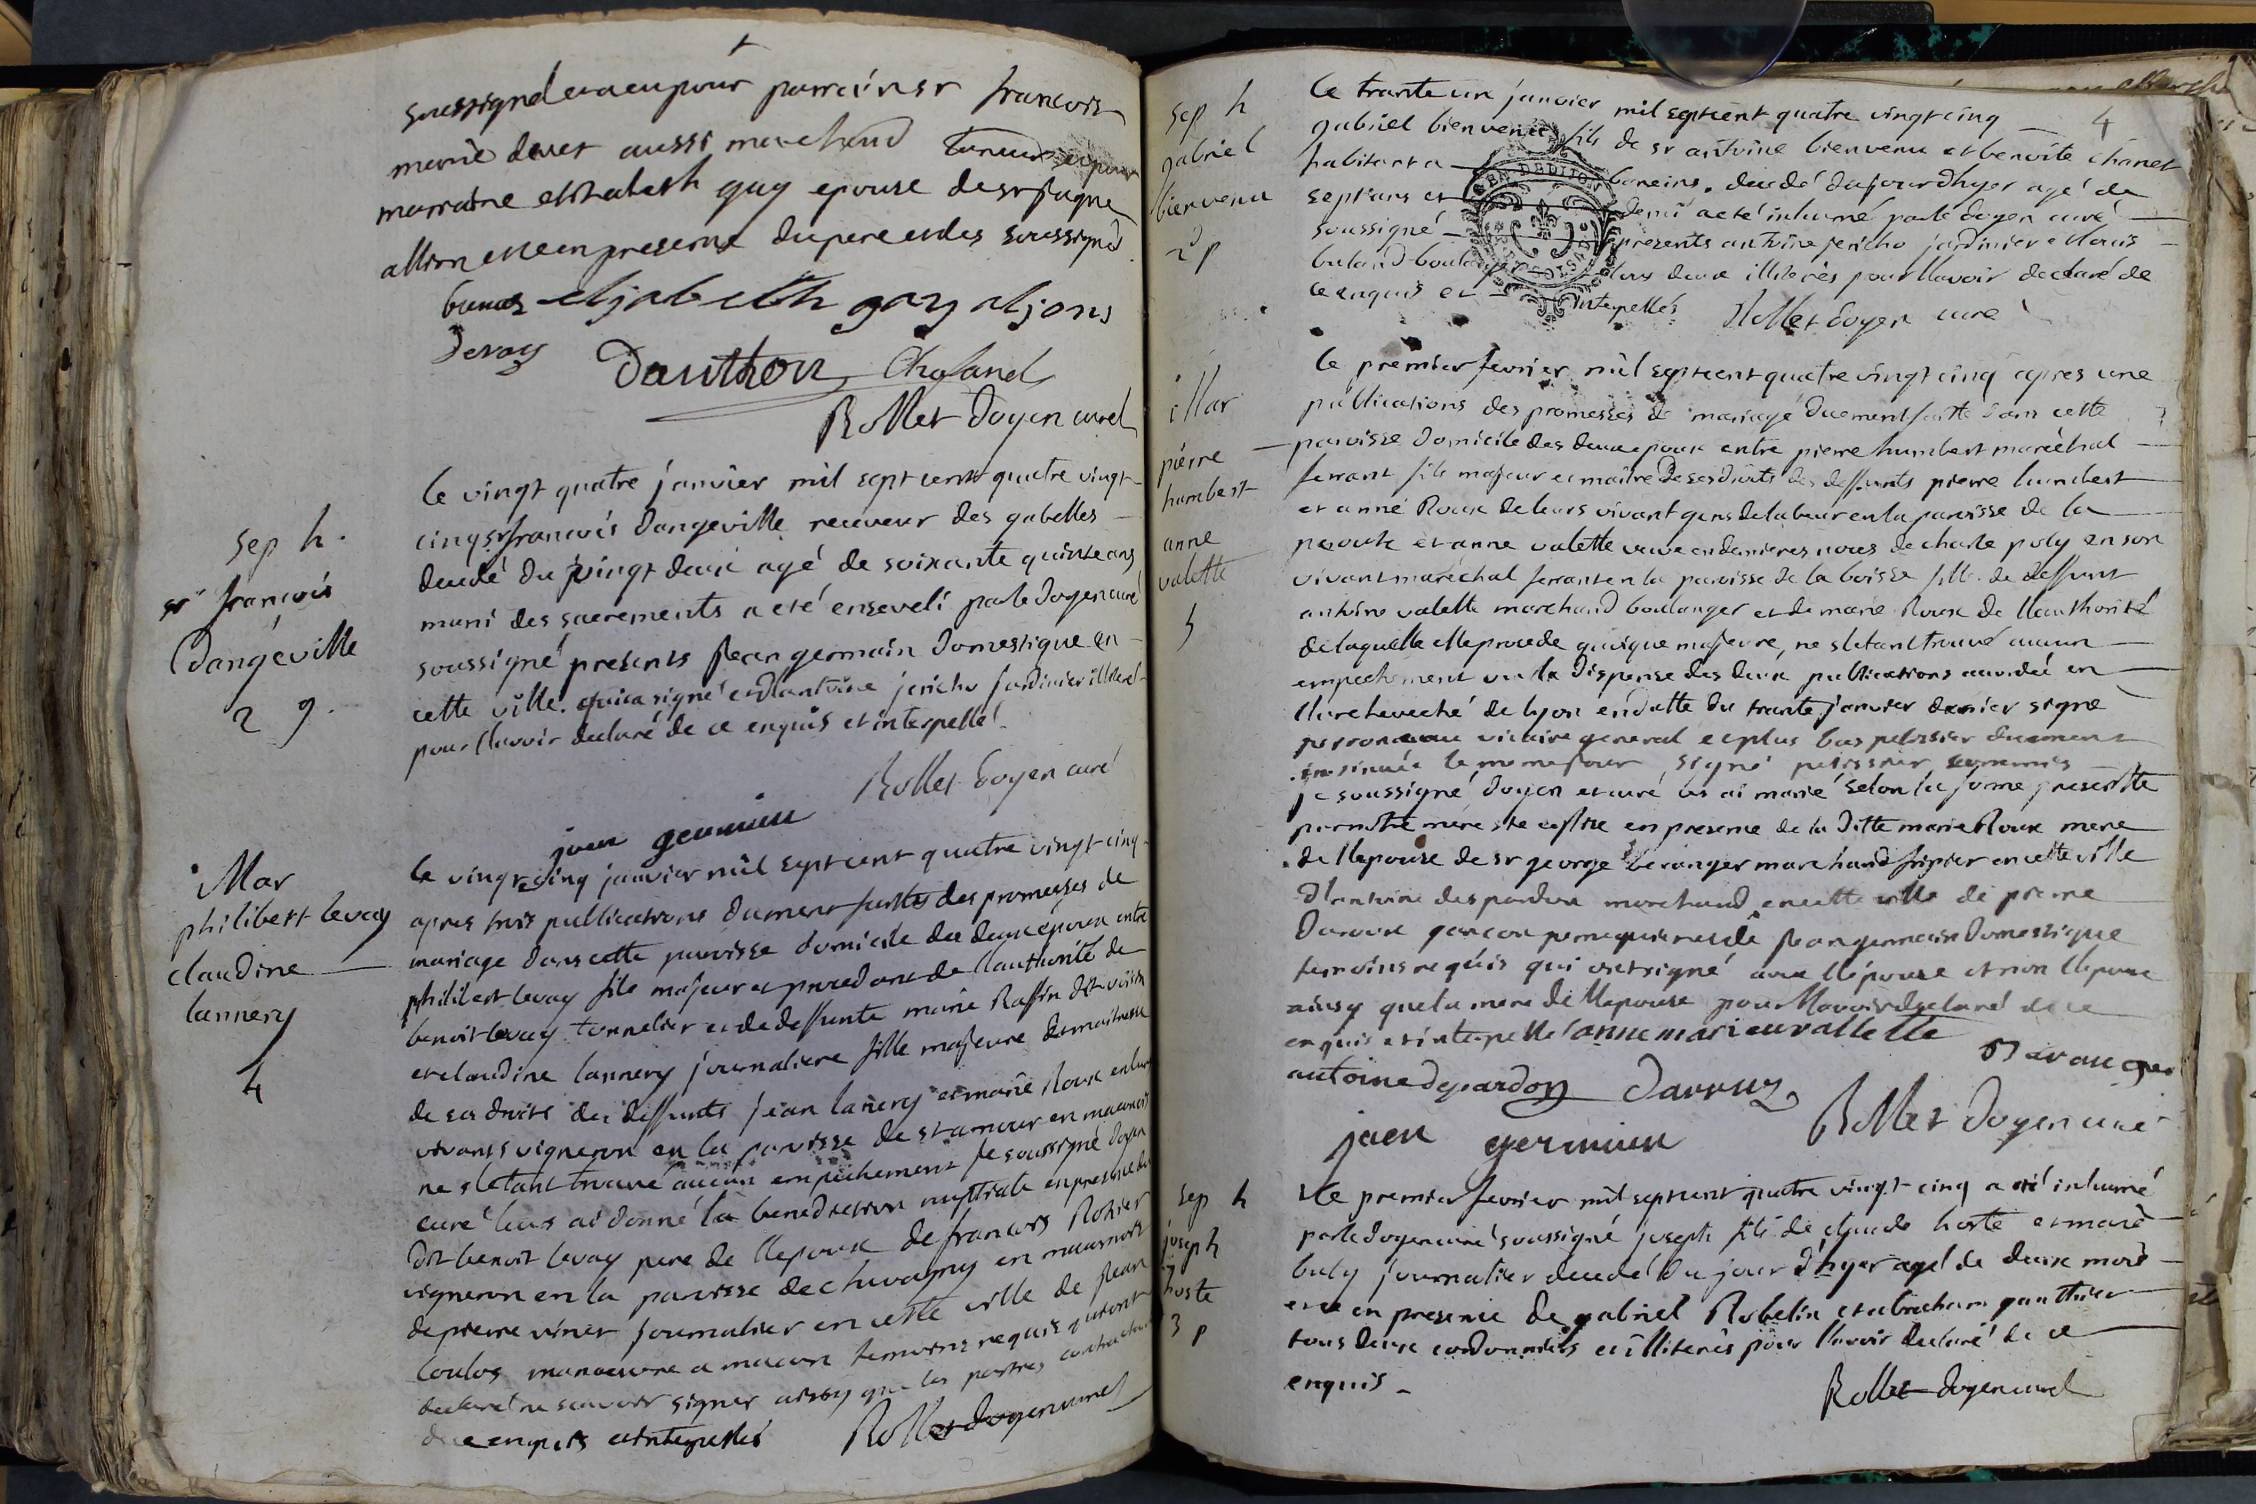 soussigné et a eu pour parrain sr francois
marie devet aussi marchand
marraine elizabeth gay epouse de sr
allion et ce en presence du pere et des soussignés
elizabeth gay aljons
devay Dauthon Chafand
Rollet doyen curé
sep h.
sr françois
Dangeville
2 g.
Le vingt quatre janvier mil sept cent quatre vingt
cinq sr francois Dangeville receveur des gabelles
decedé du vingt deux agé de soixante quinze ans
muni des sacrements a eté enseveli par le doyen curé
soussigné presents jean germain domestique en
cette ville. qui a signé et d'antoine jericho jardinier illiteré
pour l'avoir declaré de ce enquis et interpellé.
Rollet doyen curé
jaen germien
Mar
philibert levay
claudine
lannery
4
le vingt cinq janvier mil sept cent quatre vingt cinq
apres trois publications dument faites des promesses de
mariage dans cette paroisse domicile des deux epoux entre
philibert levay fils majeur et procedant de l'authorité de
benoit levay tonnelier et de deffunte marie Raffin
et claudine lannery journaliere fille majeure et maitresse
de ses droits des deffunts jean lanery et marie Roux en leurs
vivants vigneron en la paroisse de st amour en maconnois
ne s'etant trouvé aucun empechement je soussigné doyen
curé leurs ai donné la benediction nuptiale en presence du
dit benoit levay pere de l'epoux de francois Rohier
vigneron en la paroisse de chevagny en maconnois
de pierre viner journalier en cette ville de jean
coulos manoeuvre a macon temoins requis qui ont
declaré ne scavoir signer aissy que les parties contractantes
de ce enquis et interpellés Rollet doyen curé
4
sep h
gabriel
bienvenu
2 p
le trante un janvier mil sept cent quatre vingt cinq
gabriel bienvenu fils de sr antoine bienvenu et benoite chanet
habitant a baneins. decedé du jour d'hyer agé de
sept ans et demi a eté inhumé par le doyen curé
soussigné presents antoine jericho jardinier et louis
buland boulanger tous deux illiterés pour l'avoir declaré de
ce enquis et interpellés Rollet doyen curé
Mar
pierre
humbert
anne
valette
5
le premier fevrier mil sept cent quatre vingt cinq apres une
publications des promesses de mariage duement faitte dans cette
paroisse domicile des deux epoux entre pierre humbert maréchal
ferrant fils majeur et maitre de ses droits des deffunts pierre humbert
et anne Roux de leurs vivant gens de labeur en la paroisse de la
peroute et anne valette veuve en dernieres noces de charle poly en son
vivant maréchal ferrant en la paroisse de la boisse fille de deffunt
antoine valette marchand boulanger et de marie Roux de l'authorité
de laquelle elle procede quoique majeure, ne s'etant trouvé aucun
empechement vu la dispense des deux publications accordée en
l'archeveché de lyon en datte du trante janvier dernier signé
vicaire general et plus bas pelissier duement
insinuée le meme jour signé pelissier commis
je soussigné doyen et curé les ai marié selon la forme prescritte
par notre mere ste eglise en presence de la ditte marie Roux mere
de l'epouse de sr george beranger marchand fripier en cette ville
d'antoine despardon marchand en cette ville de pierre
Daroux garcon perruquier et de jean germain domestique
temoins requis qui ont signé avec l'epouse et non l'epoux
ainsy que la mere de l'epouse pour l'avoir declaré de ce
enquis et interpellé anne mari auvallette
antoine depardon Darruz Baranger
jaen germien Rollet doyen curé
sep h
joseph
hoste
3 p
Le premier fevrier mil sept cent quatre vingt cinq a eté inhumé
par le doyen curé soussigné joseph fils de claude hoste et marie
buly journalier decedé du jour d'hyer agé de deux mois
et ce en presence de gabriel Robelin et abraham gauthier
tous deux cordonniers et illiterés pour l'avoir declaré de ce
enquis
Rollet doyen curé